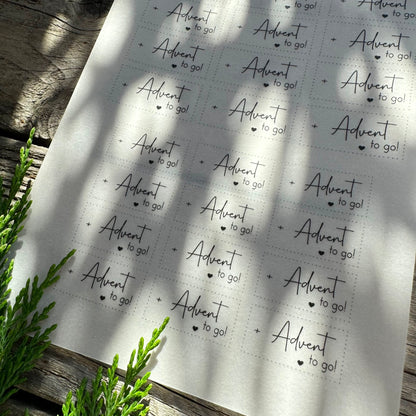 to go!
Advent
to go!
Advent
to go!
Advent
to go!
Advent
to go!
Advent
to go!
Advent
to go!
Advent
to go!
Advent
to go!
Advent
to go!
Advent
to go!
Advent
to go!
Advent
to go!
Advent
to go!
Advent
to go!
Advent
to go!
Advent
to go!
Advent
to go!
Advent
to go!
Advent
to go!
Advent
to go!
Advent
to go!